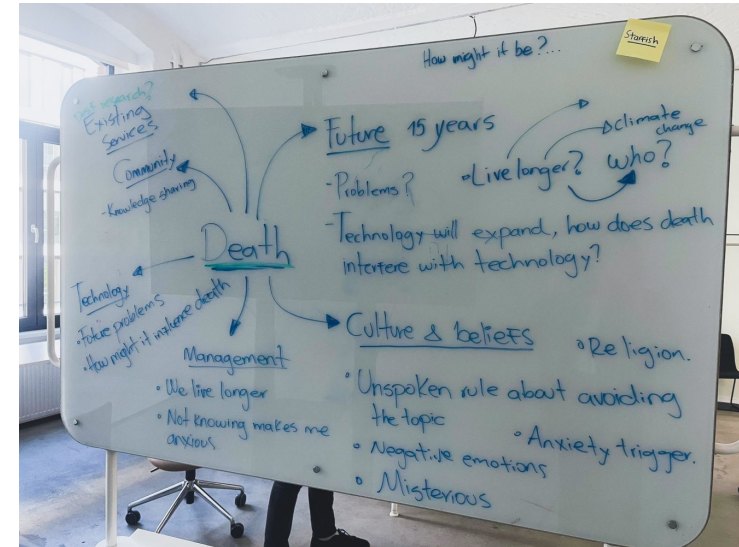 How might it be?...
Starfish
cost research?
Existing
Services
Community
- Knowledge sharing
Death
Technology
• Future problems
• How might it influence death
Management
• We live longer
• Not knowing makes me
anxious
Future 15 years
- Problems?
• Live longer?
climate
change
who?
- Technology will expand, how does death
interfere with technology?
Culture & beliefs
• Religion.
• Unspoken rule about avoiding
the topic
• Anxiety trigger.
• Negative emotions
• Misterious